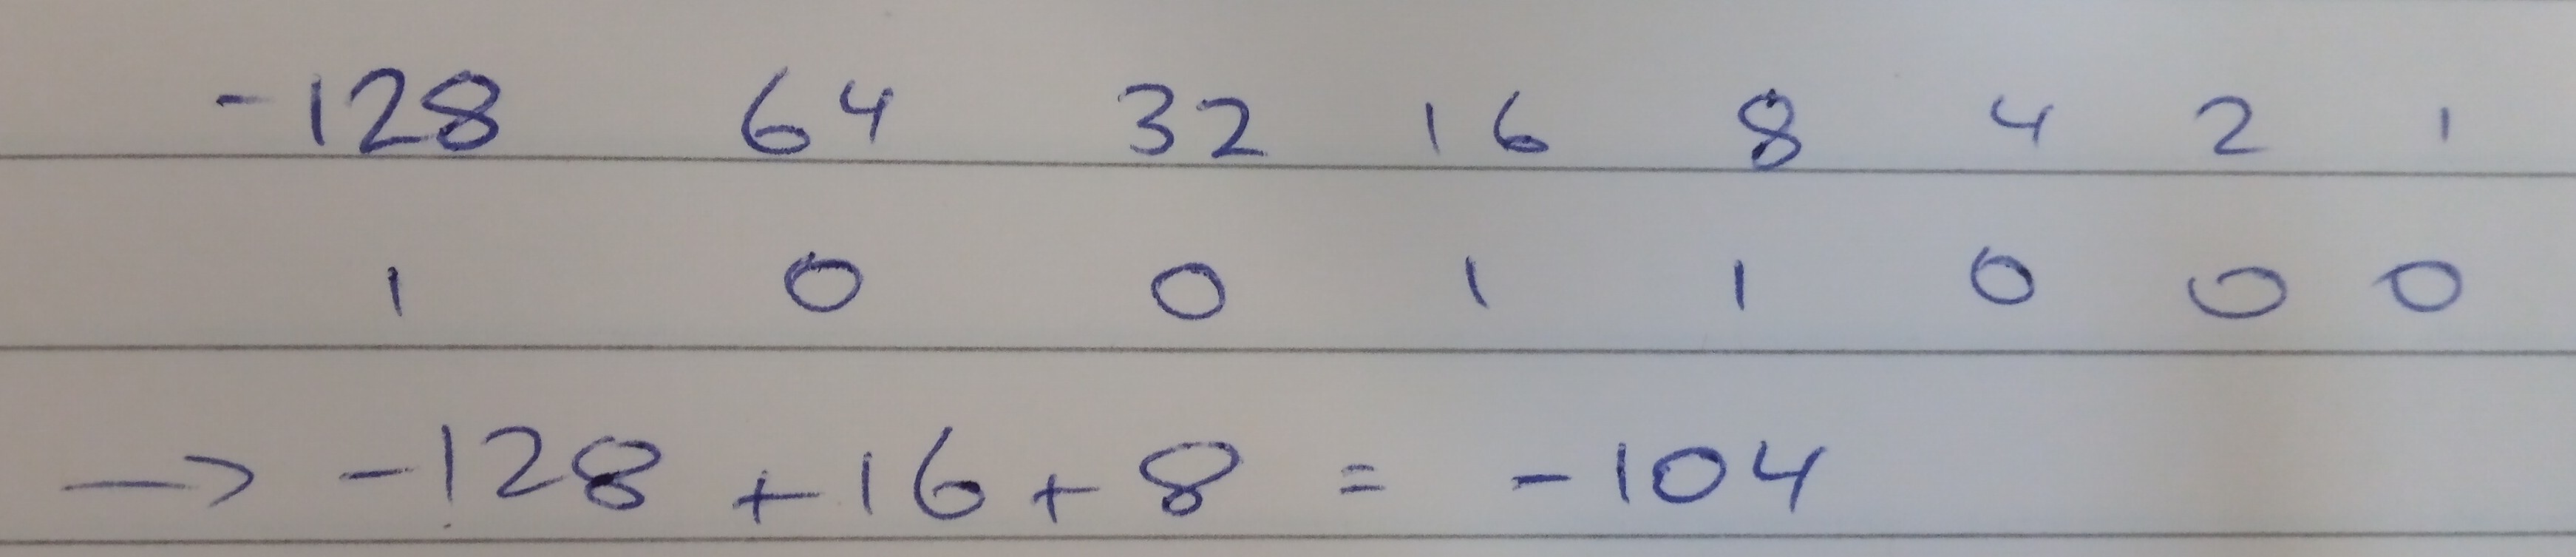 -128 64 32 16 8 4 2 1
1 0 0 1 1 0 0 0
→ -128 + 16 + 8 = -104